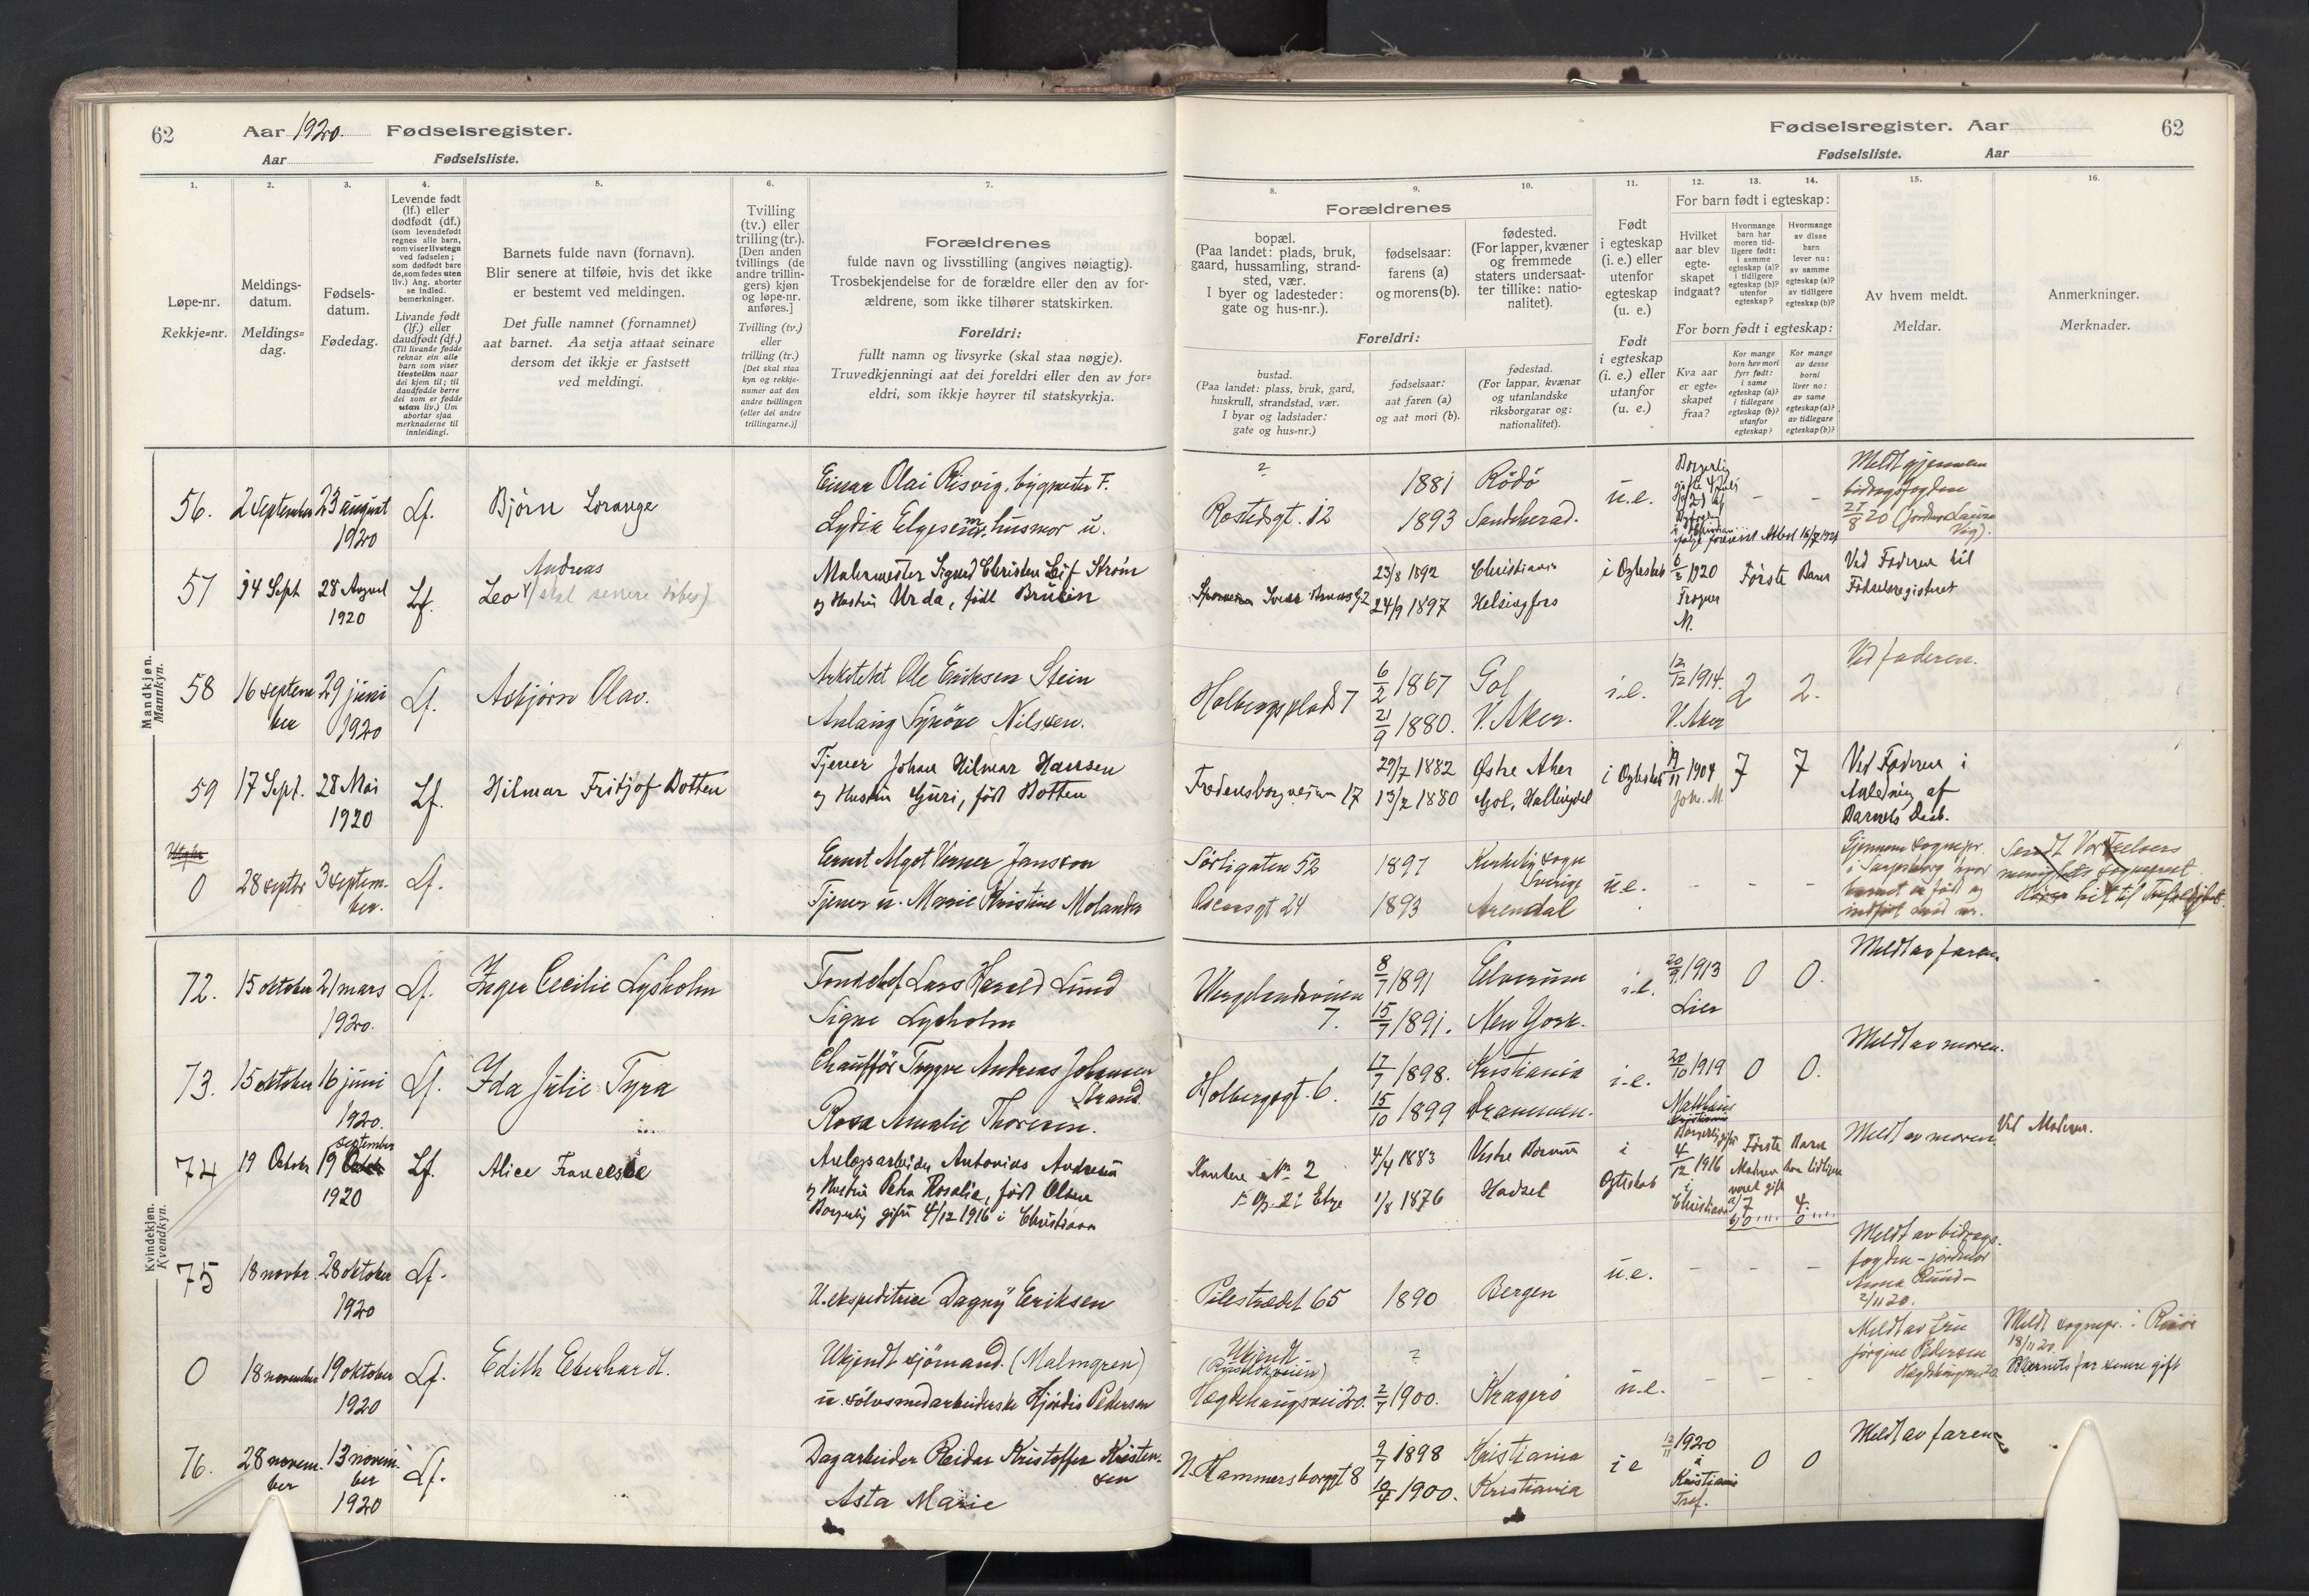 62
Aar 1920. Fødselsregister.
Aar Fødselsliste.
1.
Løpe-nr.
Rekkje=nr.
2.
Meldings-
datum.
Meldings=
dag.
3.
Fødsels-
datum.
Fødedag.
4.
Levende født
(lf.) eller
dødfødt (df.)
(som levendefødt
regnes alle barn,
som viser livstegn
ved fødselen;
som dødfødt bare
de, som fødes uten
liv.) Ang. aborter
se indled.
bemerkninger.
Livande født
(lf.) eller
daudfødt (df.)
(Til livande fødde
reknar ein alle
barn som viser
livsteikn naar
dei kjem til; til
daudfødde berre
dei som er fødde
utan liv.) Um
abortar sjaa
merknaderne til
innleidingi.
5.
Barnets fulde navn (fornavn).
Blir senere at tilføie, hvis det ikke
er bestemt ved meldingen.
Det fulle namnet (fornamnet)
aat barnet. Aa setja attaat seinare
dersom det ikkje er fastsett
ved meldingi.
6.
Tvilling
(tv.) eller
trilling (tr.).
[Den anden
tvillings (de
andre trillin-
gers) kjøn
og løpe-nr.
anføres.]
Tvilling (tv.)
eller
trilling (tr.)
[Det skal staa
kyn og rekkje-
numer aat den
andre tvillingen
(eller dei andre
trillingarne.)]
7.
Forældrenes
fulde navn og livsstilling (angives nøiagtig).
Trosbekjendelse for de forældre eller den av for-
ældrene, som ikke tilhører statskirken.
Foreldri:
fullt namn og livsyrke (skal staa nøgje).
Truvedkjenningi aat dei foreldri eller den av for=
eldri, som ikkje høyrer til statskyrkja.
Mandkjøn.
Mannkyn.
56. 2 September 23 august Lf. Bjørn Lorange Einar Olai Risvig, bygmester F.
1920 Lydia husmor u.
57 14 Sept 28 August Lf. Leo Andreas Malermester Sigurd Christen Leif Strøm
1920 og Hustru Urda, født
58 16 septem 29 juni Lf. Asbjørn Olav. Arkitekt Ole Eriksen Stein
ber 1920 Synøve Nilssen.
59 17 Sept. 28 Mai Lf. Hilmar Fritjof Botten Tjener Johan Hilmar Hansen
1920 og Hustru Guri, født Botten
0 28 septbr 3 septem- Lf. Ernst Algot Verner Jansson
ber. Tjener u. Marie Kristine Molander
Kvindekjøn.
Kvendkyn.
72. 15 oktober 21 mars Lf. Inger Cecilie Lysholm Lars Harald Lund
1920. Signe Lysholm
73. 15 oktober 16 juni Lf. Ida Julie Tyra Chauffør Trygve Andreas Johansen
1920. Strand
Rosa Amalie Thoresen.
74 19 Oktobr september
19 Lf. Alice Anlægsarbeider Antonius Andresen
1920 og Hustru Petra Rosalie, født Olsen
Borgerlig gifte 4/12 1916 i Christiania
75 18 novbr. 28 oktober Lf.
1920 U. ekspeditrice Dagny Eriksen
0 18 november 19 oktober Lf. Edith Eberhardt. Ukjendt sjömand. (Malmgren)
1920 u. sölvsmedarbeiderske Hjördis Pedersen
76. 28 novem- 13 novem- Lf. Dagarbeider Reidar Kristoffer Kristen-
ber ber sen
1920 Asta Marie
Fødselsregister. Aar 62
Fødselsliste. Aar
8.
Forældrenes
bopæl.
(Paa landet: plads, bruk,
gaard, hussamling, strand-
sted, vær.
I byer og ladesteder:
gate og hus-nr.).
Foreldri:
bustad.
(Paa landet: plass, bruk, gard,
huskrull, strandstad, vær.
I byar og ladstader:
gate og hus=nr.)
9.
fødselsaar:
farens (a)
og morens (b).
fødselsaar:
aat faren (a)
og aat mori (b).
10.
fødested.
(For lapper, kvæner
og fremmede
staters undersaat-
ter tillike: natio-
nalitet).
fødestad.
(For lappar, kvænar
og utanlandske
riksborgarar og:
nationalitet).
11.
Født
i egteskap
(i. e.) eller
utenfor
egteskap
(u. e.)
Født
i egteskap
(i. e.) eller
utanfor
(u. e.)
12. 13. 14.
For barn født i egteskap:
Hvilket
aar blev
egte-
skapet
indgaat?
Hvormange
barn har
moren tid-
ligere født:
i samme
egteskap (a)?
i tidligere
egteskap (b)?
utenfor
egteskap?
Hvormange
av disse
barn
lever nu:
av samme
egteskap (a)?
av tidligere
egteskap (b)?
For born født i egteskap:
Kva aar
er egte=
skapet
fraa?
Kor mange
born hev mori
fyrr født:
i same
egteskap (a)?
i tidlegare
egteskap (b)?
utanfor
egteskap?
Kor mange
av desse
borni
liver no:
av same
egteskap (a)?
av tidlegare
egteskap (b)?
15.
Av hvem meldt.
Meldar.
16.
Anmerkninger.
Merknader.
? 1881 Rödö u.e. Borgerlig - - Meldt gjennem
Rostedsgt. 12 1893 Sandeherad. bidragsfogden
21/8 20
23/8 1892 Christiania i Egteskab 1920 Første Barn Ved Faderen til
24/9 1897 Helsingfors Frogner Fødselsregisteret
M.
Holbergsplads 7 6/2 1867 Gol i.e. 12/12 1914. 2 2. Ved faderen.
21/9 1880. V. Aker. V. Aker
Fredensborgveien 17 29/7 1882 Østre Aker i Egteskab 1904 7 7 Ved Faderen i
13/2 1880 Gol, Hallingdal Joh. M. Anledning af
Barnets Daab.
Sörligaten 52 1897 sogn u.e. - - - Gjennem sognepr.
Sverige i Sarpsborg hvor
Oscarsgt 24 1893 Arendal barnet er født og
Wergelandsveien 8/7 1891 Elverum i.e. 20/9 1913 0 0. Meldt av faren
7. 15/7 1891. New York. Lier
Holbergsgt. 6. 17/7 1898. Kristiania i.e. 20/10 1919 0 0. Meldt av moren.
15/10 1899 Drammen. Matthæus
No 2 4/4 1883 Vestre i 4/12 1916 Første Barn Meldt av moren. Ved Moderen.
1/8 1876 Hadsel Egteskab i Moderen har tidligere
Christiania været gift
Pilestrædet 65 1890 Bergen u.e. - - - Meldt av bidrags-
fogden - jordmor
Anna
2/11 20.
Ukjendt ? Meldt av fru Meldt sognepr. i
Hægdehaugsvei 20. 2/7 1900. Kragerö u.e. - - - Jörgine Pedersen 18/11 20.
Barnets far senere gift
N. Hammersborggt 8 9/7 1898 Kristiania i e 1920 0 0 Meldt av faren
10/4 1900. Kristiania i
Kristiania
Tref.